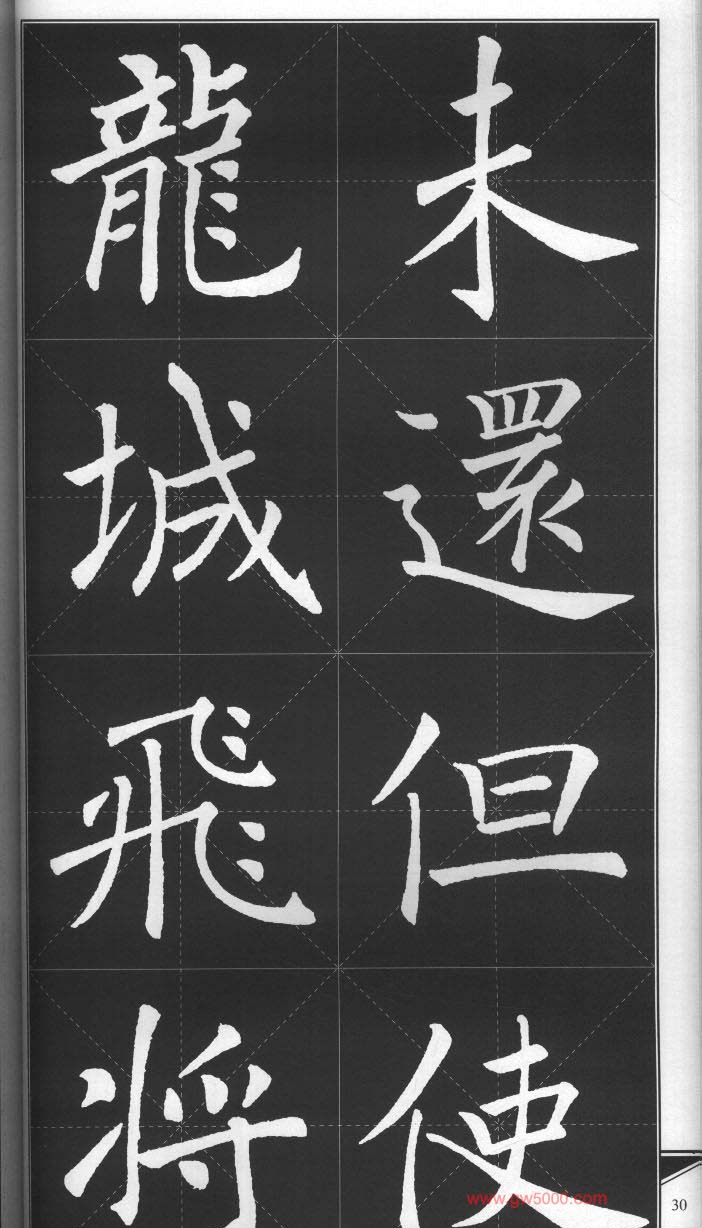 未還但使
龍城飛将
www.gw5000.com
30